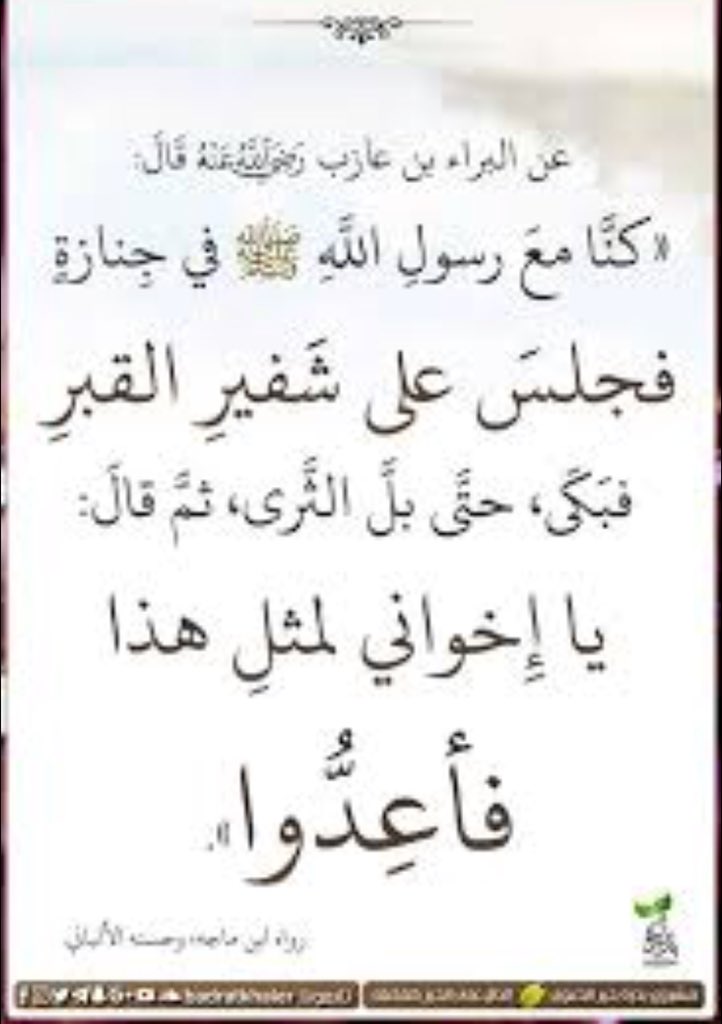 عن البراء بن عازب رَضِيَ اللَّهُ عَنْهُ قَالَ:
«كنَّا معَ رسولِ اللَّهِ ﷺ في جِنازةٍ
فجلسَ على شَفيرِ القبرِ
فبَكَى، حتَّى بلَّ الثَّرى، ثمَّ قالَ:
يا إِخواني لمثلِ هذا
فأعِدُّوا».
رواه ابن ماجه، وحسنه الألباني